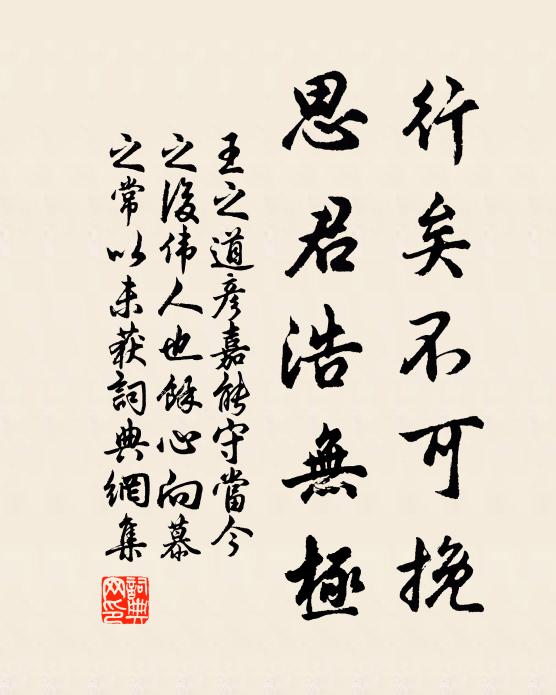 行矣不可挽
思君浩無極
王之道彦嘉能守當今
之後伟人也餘心向慕
之常以未获詞典網集
詞典网印